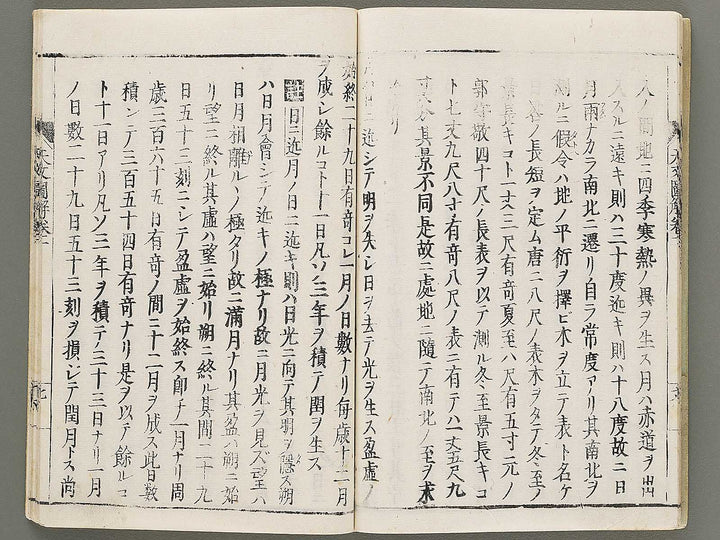 人ノ間地ニ四季寒熱ノ異ヲ生ス月ハ赤道ヲ出
入スルニ遠キ則ハ三十度近キ則ハ十八度故ニ日
月雨ナカラ南北ニ遷リ自ラ常度アリ其南北ヲ
測ルニ假令ハ地ノ平衍ヲ擇ビ木ヲ立テ表ト名ケ
日晷ノ長短ヲ定ム唐ニ八尺ノ表木ヲタテ冬至ノ
景長キコト一丈三尺有奇夏至ハ尺有五寸元ノ
郭守敬四十尺ノ長表ヲ以テ測ル冬至景長キコ
ト七丈九尺八寸有奇八尺ノ表ニ有テハ一丈五尺九
寸其景不同是故ニ處地ニ隨テ南北ノ至ヲ求
近シテ明ヲ失シ日ヲ去テ光ヲ生ス盈虚ノ
始終二十九日有奇コレ一月ノ日數ナリ毎歳十二月
ヲ成シ餘ルコト十一日凡ソ三年ヲ積テ閏ヲ生ス
註 日ニ近月ノ日ニ近キ則ハ日光ニ向テ其明ヲ隱ス朔
ハ日月會シテ近キノ極ナリ故ニ月光ヲ見ズ望ハ
日月相離ルノ極タリ故ニ滿月ナリ其盈ハ朔ニ始
リ望ニ終ル其虚ハ望ニ始リ朔ニ終ル其間二十九
日五十三刻ニシテ盈虚ヲ始終ス即チ一月ナリ周
歳三百六十五日有奇ノ間ニ十二月ヲ成ス此日數
積ンテ三百五十四日有奇ナリ是ヲ以テ餘ルコ
ト十一日アリ凡ソ三年ヲ積テ三十三日ナリ一月
ノ日數二十九日五十三刻ヲ損シテ閏月トス尚
天文圖解卷二